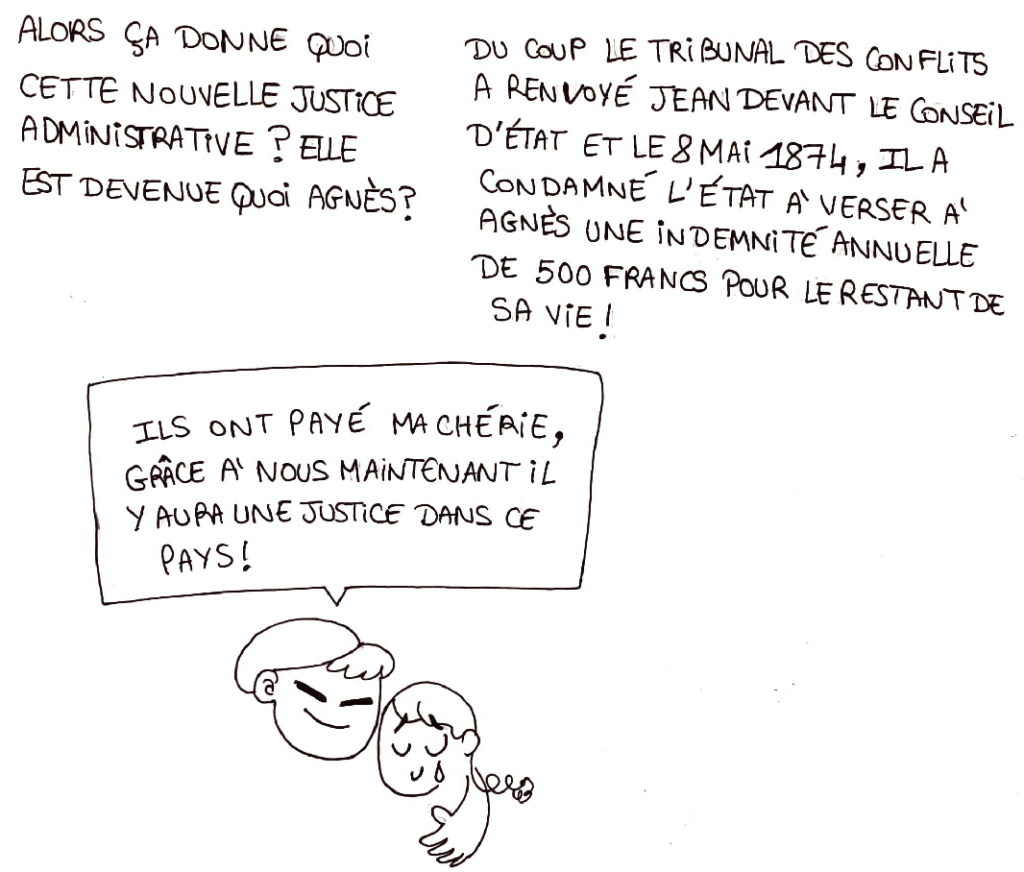 ALORS ÇA DONNE QUOI
CETTE NOUVELLE JUSTICE
ADMINISTRATIVE ? ELLE
EST DEVENUE QUOI AGNÈS ?
DU COUP LE TRIBUNAL DES CONFLITS
A RENVOYÉ JEAN DEVANT LE CONSEIL
D'ÉTAT ET LE 8 MAI 1874, IL A
CONDAMNÉ L'ÉTAT À VERSER À
AGNÈS UNE INDEMNITÉ ANNUELLE
DE 500 FRANCS POUR LE RESTANT DE
SA VIE !
ILS ONT PAYÉ MA CHÉRIE,
GRÂCE À NOUS MAINTENANT IL
Y AURA UNE JUSTICE DANS CE
PAYS !